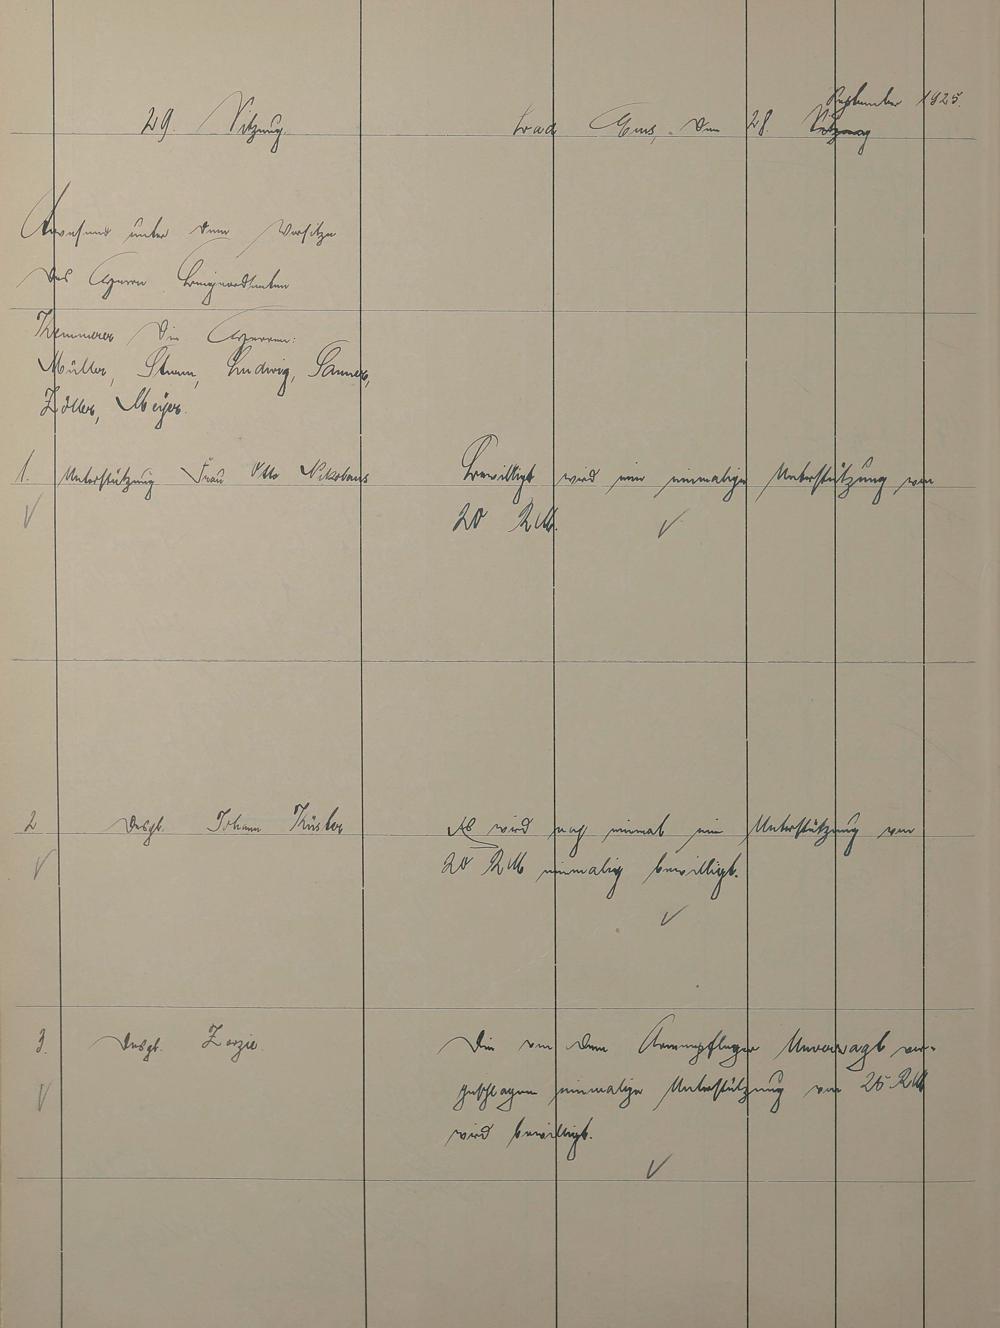 29. Sitzung.
Bad Ems, den 28. Sitzung September 1925.
Anwesend unter dem Vorsitze
des Herrn Beigeordneten
Kemmerer die Herren:
Müller, Sturm, Ludwig, Sauner,
Zöller, Meyer.
1. Unterstützung Frau Otto Nikolaus
Bewilligt wird eine einmalige Unterstützung von
20 RM.
2 Desgl. Johann Küster
Es wird noch einmal eine Unterstützung von
20 RM einmalig bewilligt.
3. Desgl. Zorzie
Die von dem Armenpfleger Unverzagt vor-
geschlagene einmalige Unterstützung von 25 RM
wird bewilligt.